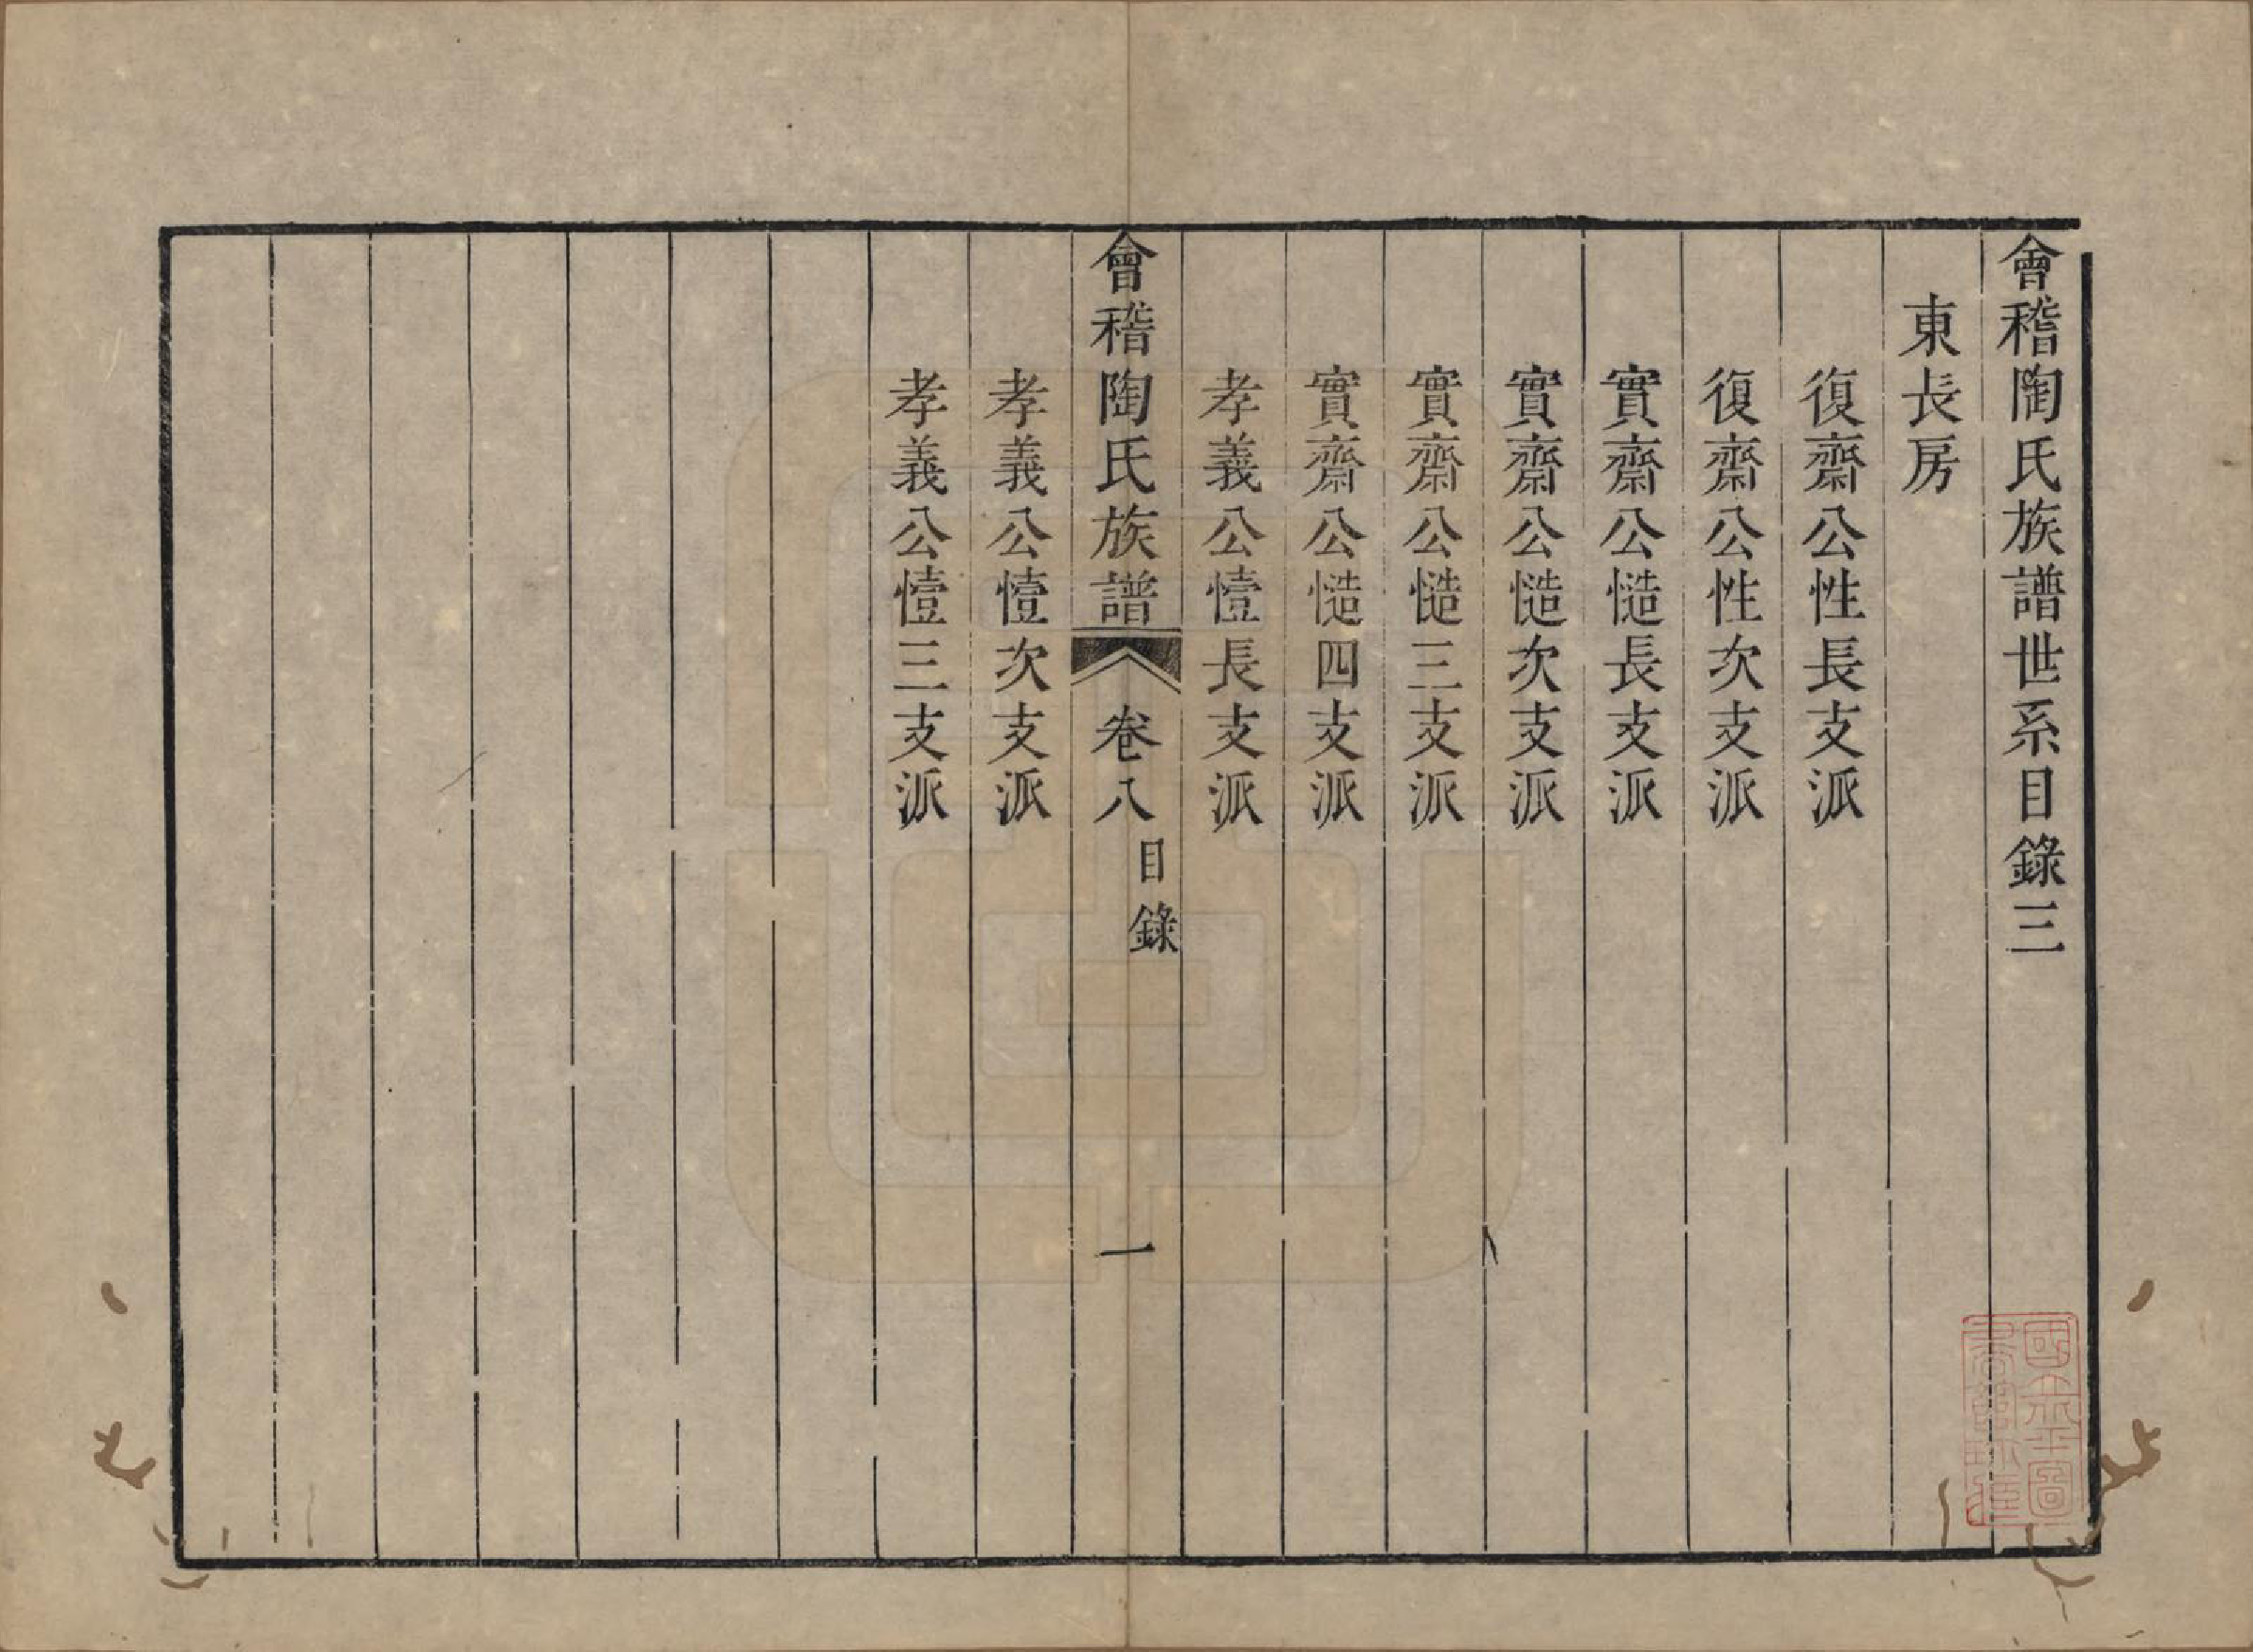 會稽陶氏族譜世系目錄三
東長房
復齋公性長支派
復齋公性次支派
實齋公慥長支派
實齋公慥次支派
實齋公慥三支派
實齋公慥四支派
孝義公懛長支派
會稽陶氏族譜
卷八
目錄
一
孝義公懛次支派
孝義公懛三支派